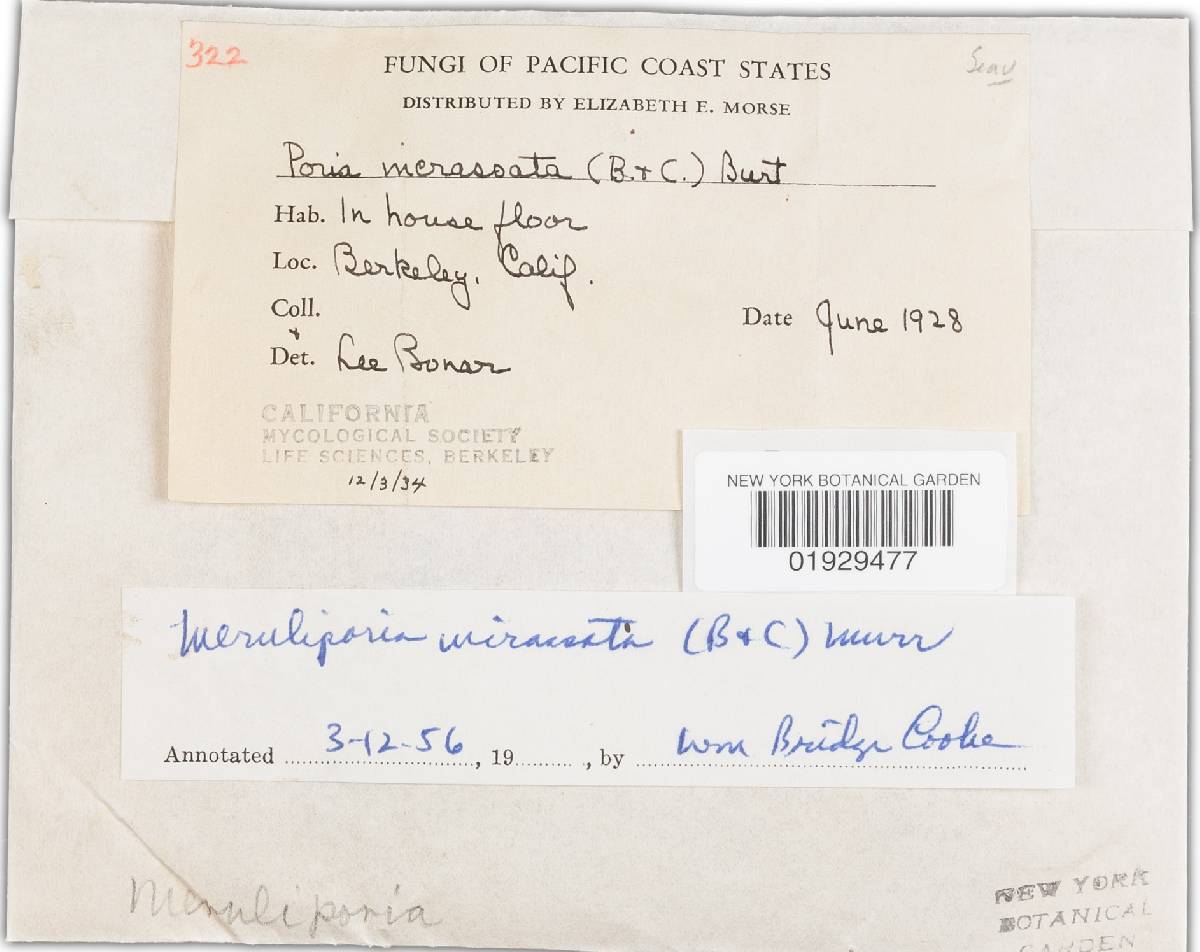 322
FUNGI OF PACIFIC COAST STATES
DISTRIBUTED BY ELIZABETH E. MORSE
Poria incrassata (B. + C.) Burt
Hab. In house floor
Loc. Berkeley, Calif.
Coll.
+
Det. Lee Bonar
Date June 1928
CALIFORNIA
MYCOLOGICAL SOCIETY
LIFE SCIENCES, BERKELEY
12/3/34
NEW YORK BOTANICAL GARDEN
01929477
Meruliporia incrassata (B + C) Murr
Annotated 3-12-56, 19........, by Wm Bridge Cooke
Meruliporia
NEW YORK
BOTANICAL
GARDEN